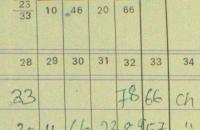 23/33 10 .46 20 66
28 29 30 31 32 33 34
23 78 66 Ch